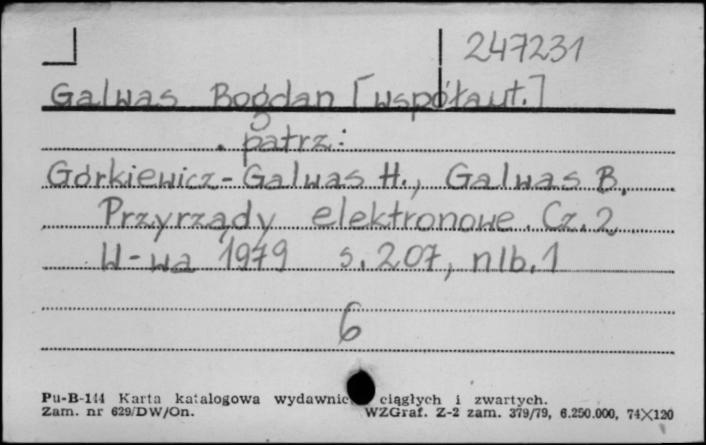 247231
Galwas Bogdan [współaut.]
. patrz:
Górkiewicz-Galwas H., Galwas B.
Przyrządy elektronowe. Cz. 2
W-wa 1979 s. 207, nlb. 1
6
Pu-B-144 Karta katalogowa wydawnic ciągłych i zwartych.
Zam. nr 629/DW/On. WZGraf. Z-2 zam. 379/79, 6.250.000, 74×120